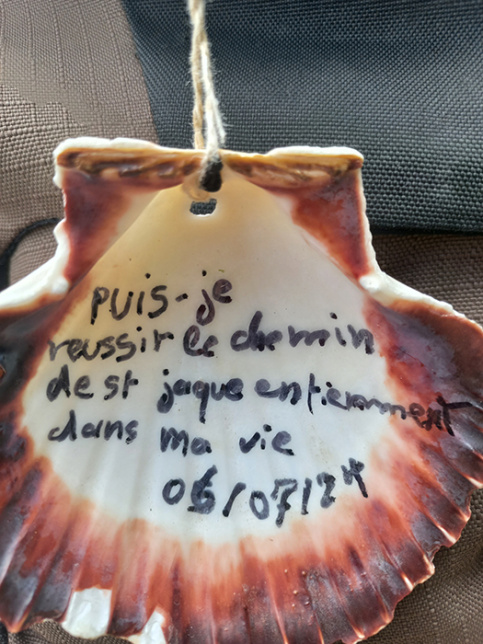 PUIS-je
reussir le chemin
de st jaque entieremment
dans ma vie
06/07/24